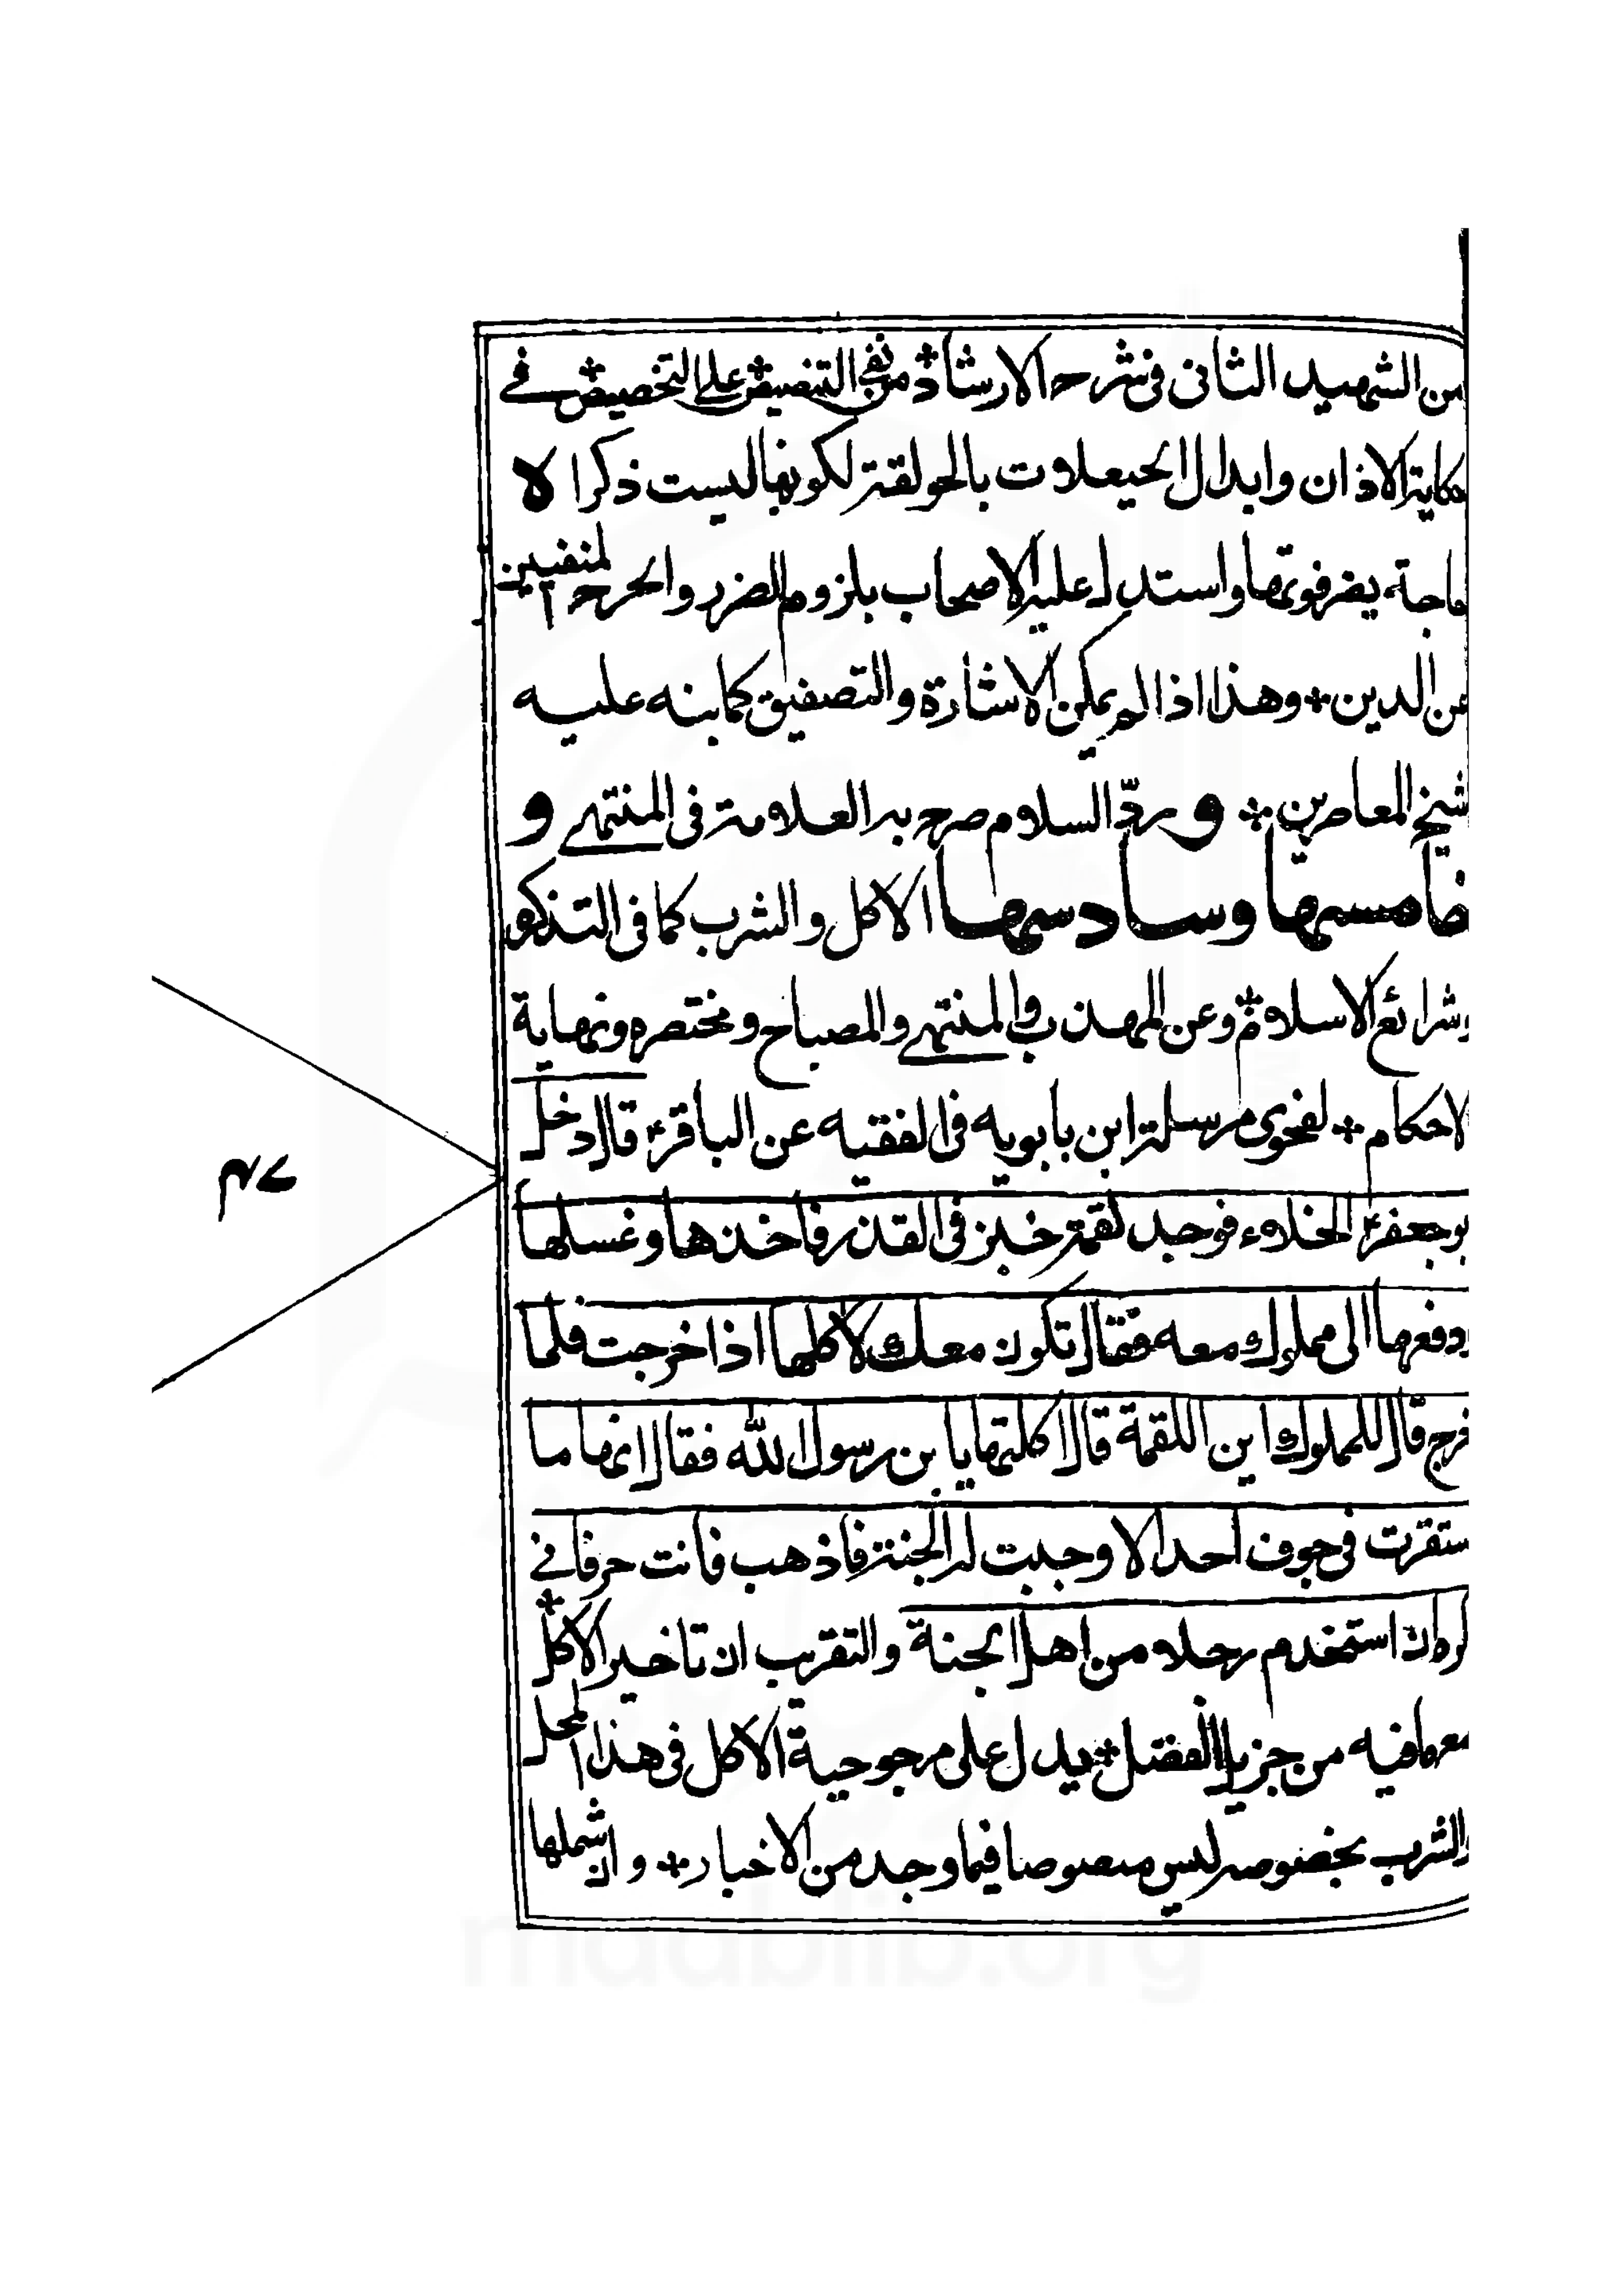 من الشهيد الثانى فى شرح الارشاد من نفى التنصيص على التخصيص فے
حكاية الاذان وابدال الحيعلات بالحولقة لكونها ليست ذكرا لا
حاجة يضر فوتها واستدل عليه الاصحاب بلزوم الضرر والحرج المنفيين
عن الدين وهذا اذا لم يمكن الاشارة والتصفيق كما نبه عليه
شيخ المعاصرين وردّ السلام صرح به العلامة فى المنتهے و
خامسها وسادسها الاكل والشرب كما فى التذكر
وشرائع الاسلام وعن المهذب والمنتهے والمصباح ومختصره ونهاية
لاحكام لفحوى مرسلة ابن بابويه فى الفقيه عن الباقرؑ قال دخل
بوجعفرؑ الخلاء فوجد لقمة خبز فى القذر فاخذها وغسلها
ودفعها الى مملوك معه فقال تكون معك لاكلها اذا خرجت فلما
خرج قال للمملوك اين اللقمة قال اكلتها يا بن رسول الله فقال انها ما
ستقرت فى جوف احد الا وجبت له الجنة فاذهب فانت حر فانے
كره ان استخدم رجلا من اهل الجنة والتقريب ان تاخير الاكل
معها فيه من جزيل الفضل يدل على مرجوحية الاكل فى هذا المحل
والشرب بخصوصه ليس منصوصا فيما وجد من الاخبار وان شملها
٤٧
mdablib.org